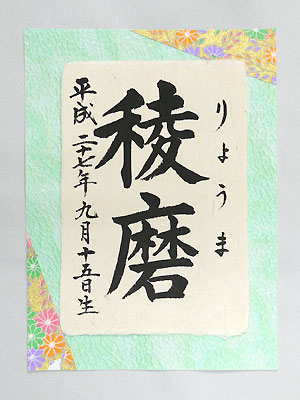 りょうま
稜磨
平成二十七年九月十五日生